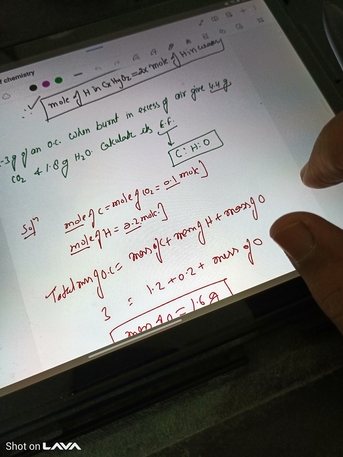 chemistry
mole of H in CxHyO2 = 2x mole of H in
3g of an o.c. when burnt in excess of air give 4.4g
CO2 & 1.8g H2O. Calculate its E.F.
C:H:O
Solⁿ
mole of C = mole of CO2 = 0.1 mole]
mole of H = 0.2 mole]
Total mass of O.C = mass of C + mass of H + mass of O
3 = 1.2 + 0.2 + mass of O
mass of O = 1.6g
Shot on LAVA